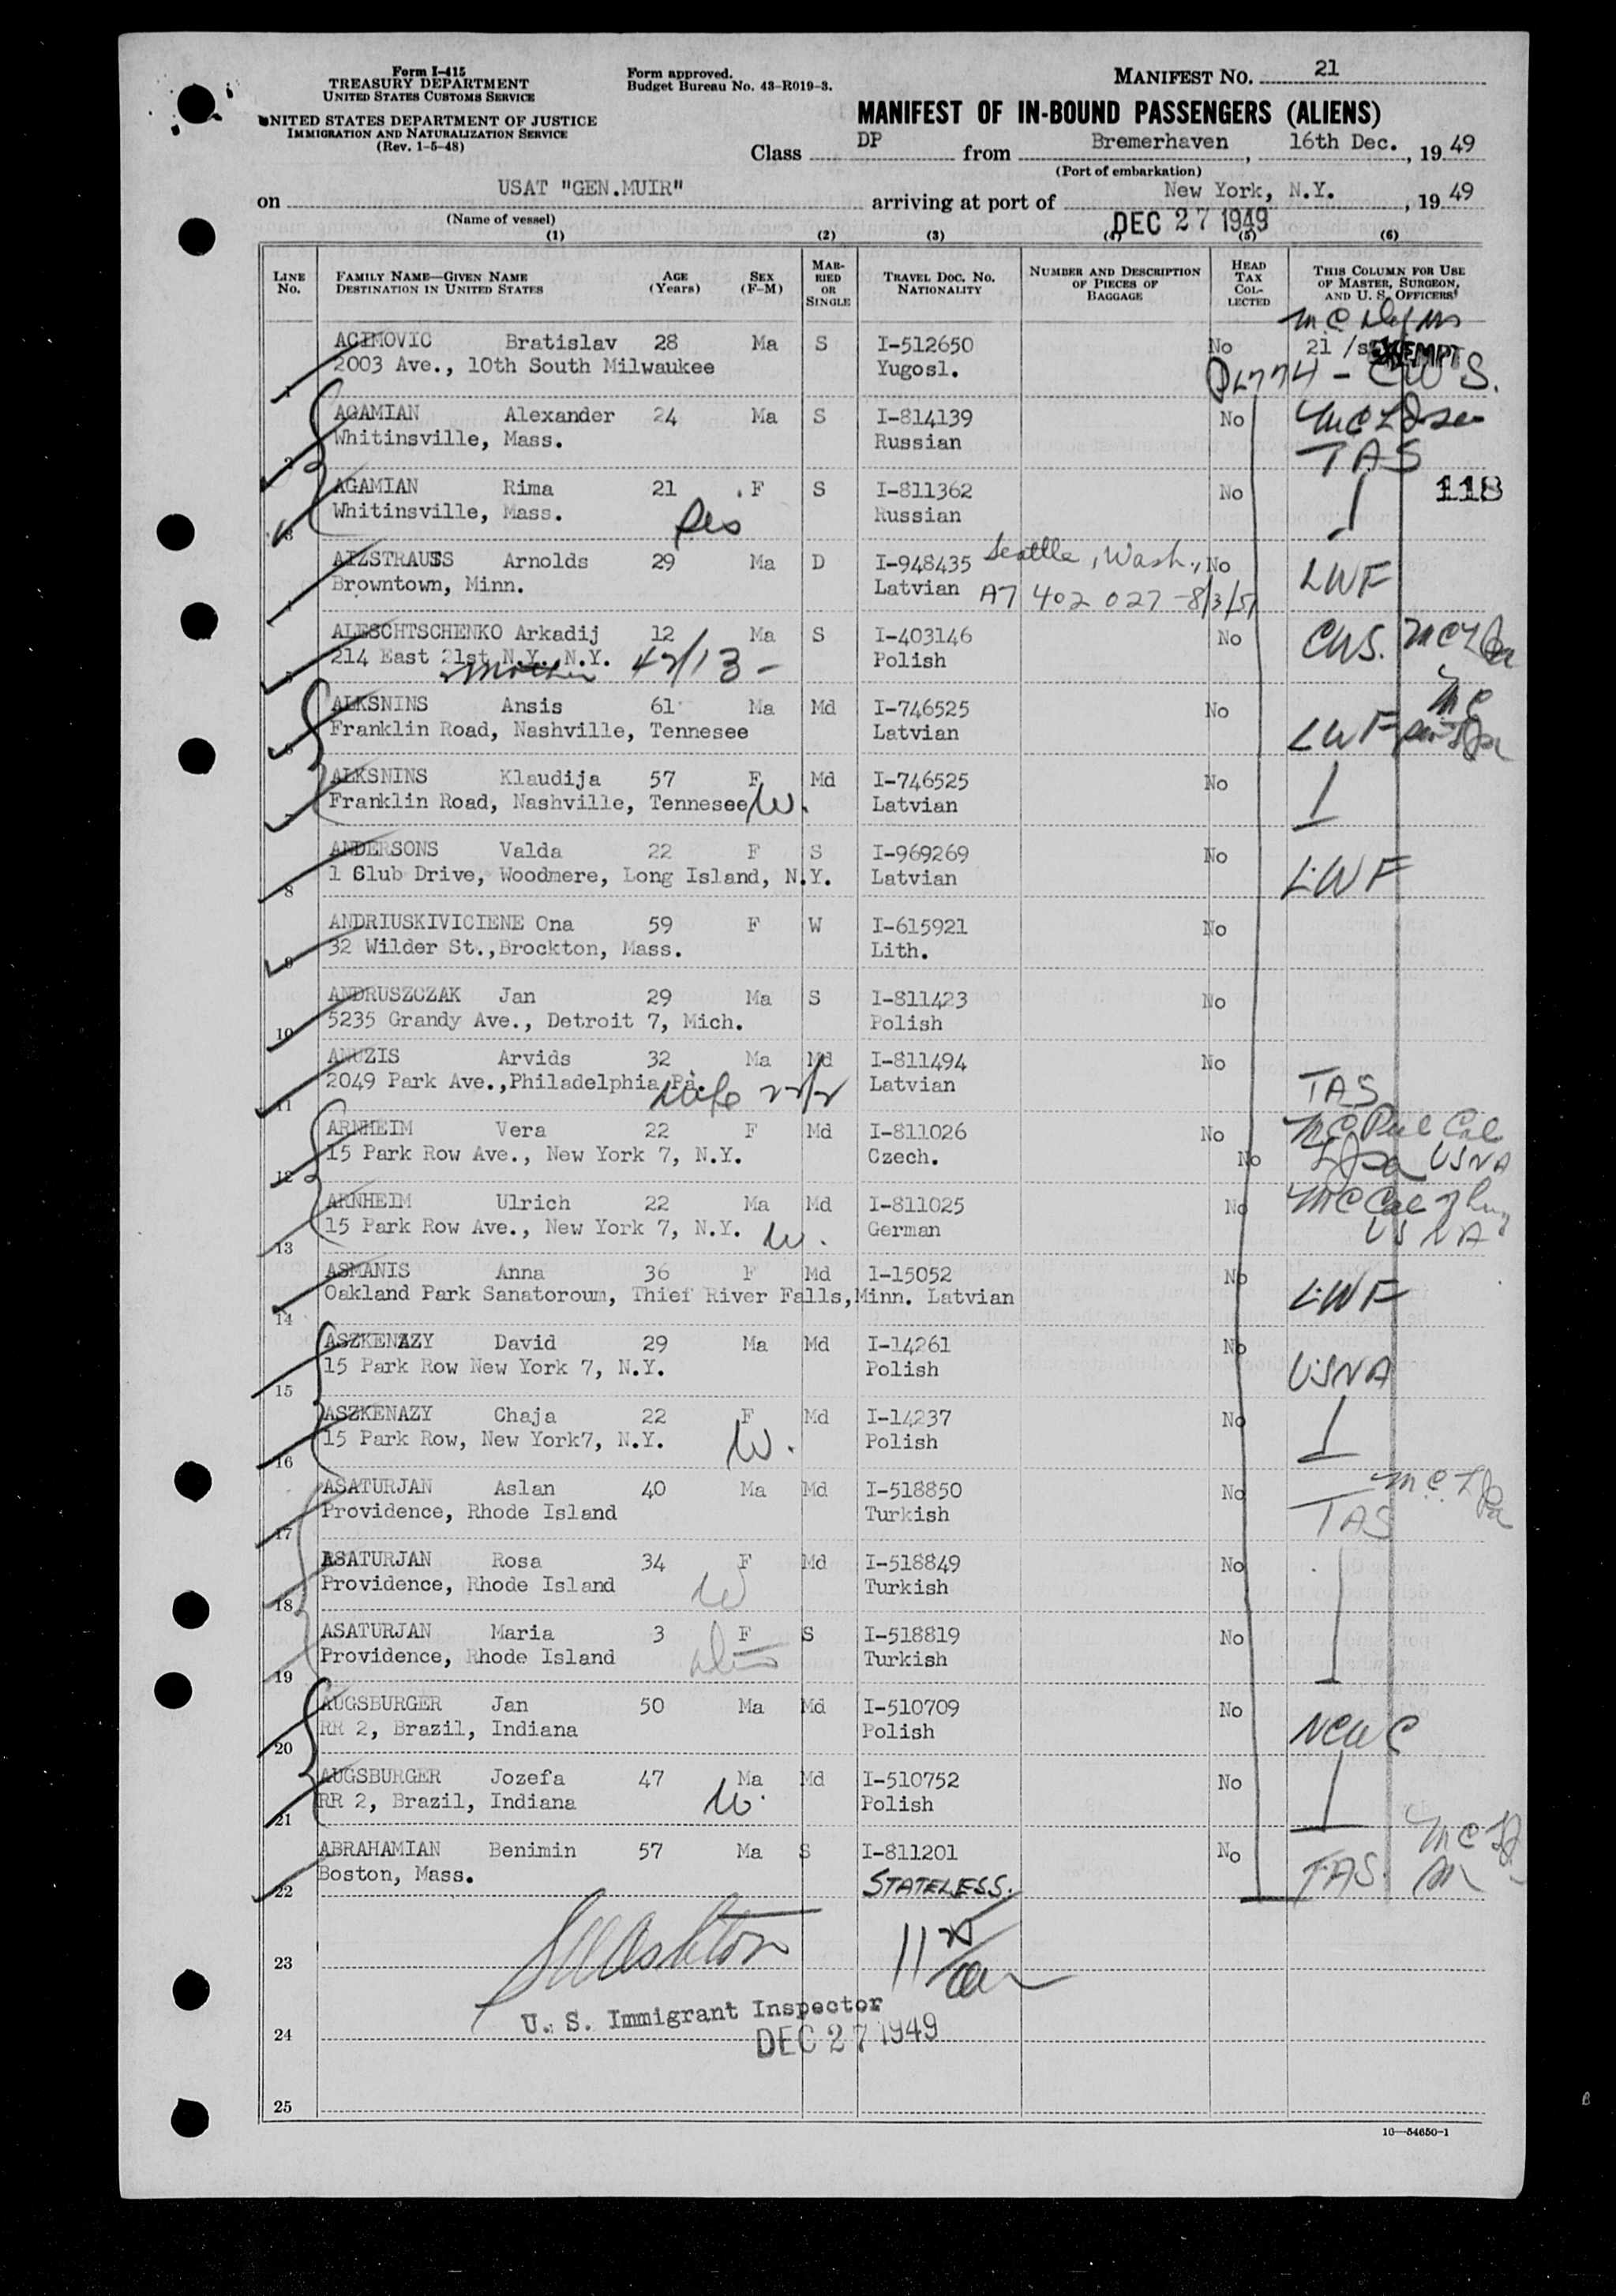 Form I-415
TREASURY DEPARTMENT
UNITED STATES CUSTOMS SERVICE
UNITED STATES DEPARTMENT OF JUSTICE
IMMIGRATION AND NATURALIZATION SERVICE
(Rev. 1-5-48)
Form approved.
Budget Bureau No. 43-R019-3.
MANIFEST NO. 21
MANIFEST OF IN-BOUND PASSENGERS (ALIENS)
Class DP from Bremerhaven, 16th Dec., 1949
(Port of embarkation)
on USAT "GEN.MUIR" arriving at port of New York, N.Y., 1949
(Name of vessel)
DEC 27 1949
(1) (2) (3) (4) (5) (6)
LINE No. FAMILY NAME—GIVEN NAME DESTINATION IN UNITED STATES AGE (Years) SEX (F-M) MARRIED OR SINGLE TRAVEL DOC. NO. NATIONALITY NUMBER AND DESCRIPTION OF PIECES OF BAGGAGE HEAD TAX COLLECTED THIS COLUMN FOR USE OF MASTER, SURGEON, AND U. S. OFFICERS
1 ACIMOVIC Bratislav 28 Ma S I-512650 No 21 EXEMPT
2003 Ave., 10th South Milwaukee Yugosl. CWS.
2 AGAMIAN Alexander 24 Ma S I-814139 No
Whitinsville, Mass. Russian TAS
3 AGAMIAN Rima 21 F S I-811362 No 118
Whitinsville, Mass. Russian
4 AIZSTRAUTS Arnolds 29 Ma D I-948435 Seattle, Wash., No LWF
Browntown, Minn. Latvian A7 402 027-8/3/51
5 ALESCHTSCHENKO Arkadij 12 Ma S I-403146 No CWS.
214 East 21st N.Y. N.Y. Polish
mother 42/13-
6 ALKSNINS Ansis 61 Ma Md I-746525 No MC
Franklin Road, Nashville, Tennesee Latvian LWF
7 ALKSNINS Klaudija 57 F Md I-746525 No
Franklin Road, Nashville, Tennesee W. Latvian
8 ANDERSONS Valda 22 F S I-969269 No LWF
1 Club Drive, Woodmere, Long Island, N.Y. Latvian
9 ANDRIUSKIVICIENE Ona 59 F W I-615921 No
32 Wilder St.,Brockton, Mass. Lith.
10 ANDRUSZCZAK Jan 29 Ma S I-811423 No
5235 Grandy Ave., Detroit 7, Mich. Polish
11 ANUZIS Arvids 32 Ma Md I-811494 No
2049 Park Ave.,Philadelphia Pa. Latvian TAS
wife
12 ARNHEIM Vera 22 F Md I-811026 No
15 Park Row Ave., New York 7, N.Y. Czech. No USNA
13 ARNHEIM Ulrich 22 Ma Md I-811025 No
15 Park Row Ave., New York 7, N.Y. W. German USNA
14 ASMANIS Anna 36 F Md I-15052 No LWF
Oakland Park Sanatoroum, Thief River Falls,Minn. Latvian
15 ASZKENAZY David 29 Ma Md I-14261 No USNA
15 Park Row New York 7, N.Y. Polish
16 ASZKENAZY Chaja 22 F Md I-14237 No
15 Park Row, New York7, N.Y. W. Polish
17 ASATURJAN Aslan 40 Ma Md I-518850 No
Providence, Rhode Island Turkish TAS
18 ASATURJAN Rosa 34 F Md I-518849 No
Providence, Rhode Island W Turkish
19 ASATURJAN Maria 3 F S I-518819 No
Providence, Rhode Island Turkish
20 AUGSBURGER Jan 50 Ma Md I-510709 No
RR 2, Brazil, Indiana Polish NCWC
21 AUGSBURGER Jozefa 47 Ma Md I-510752 No
RR 2, Brazil, Indiana W. Polish
22 ABRAHAMIAN Benimin 57 Ma S I-811201 No
Boston, Mass. STATELESS. TAS.
23
U. S. Immigrant Inspector
24 DEC 27 1949
25
16—54650-1